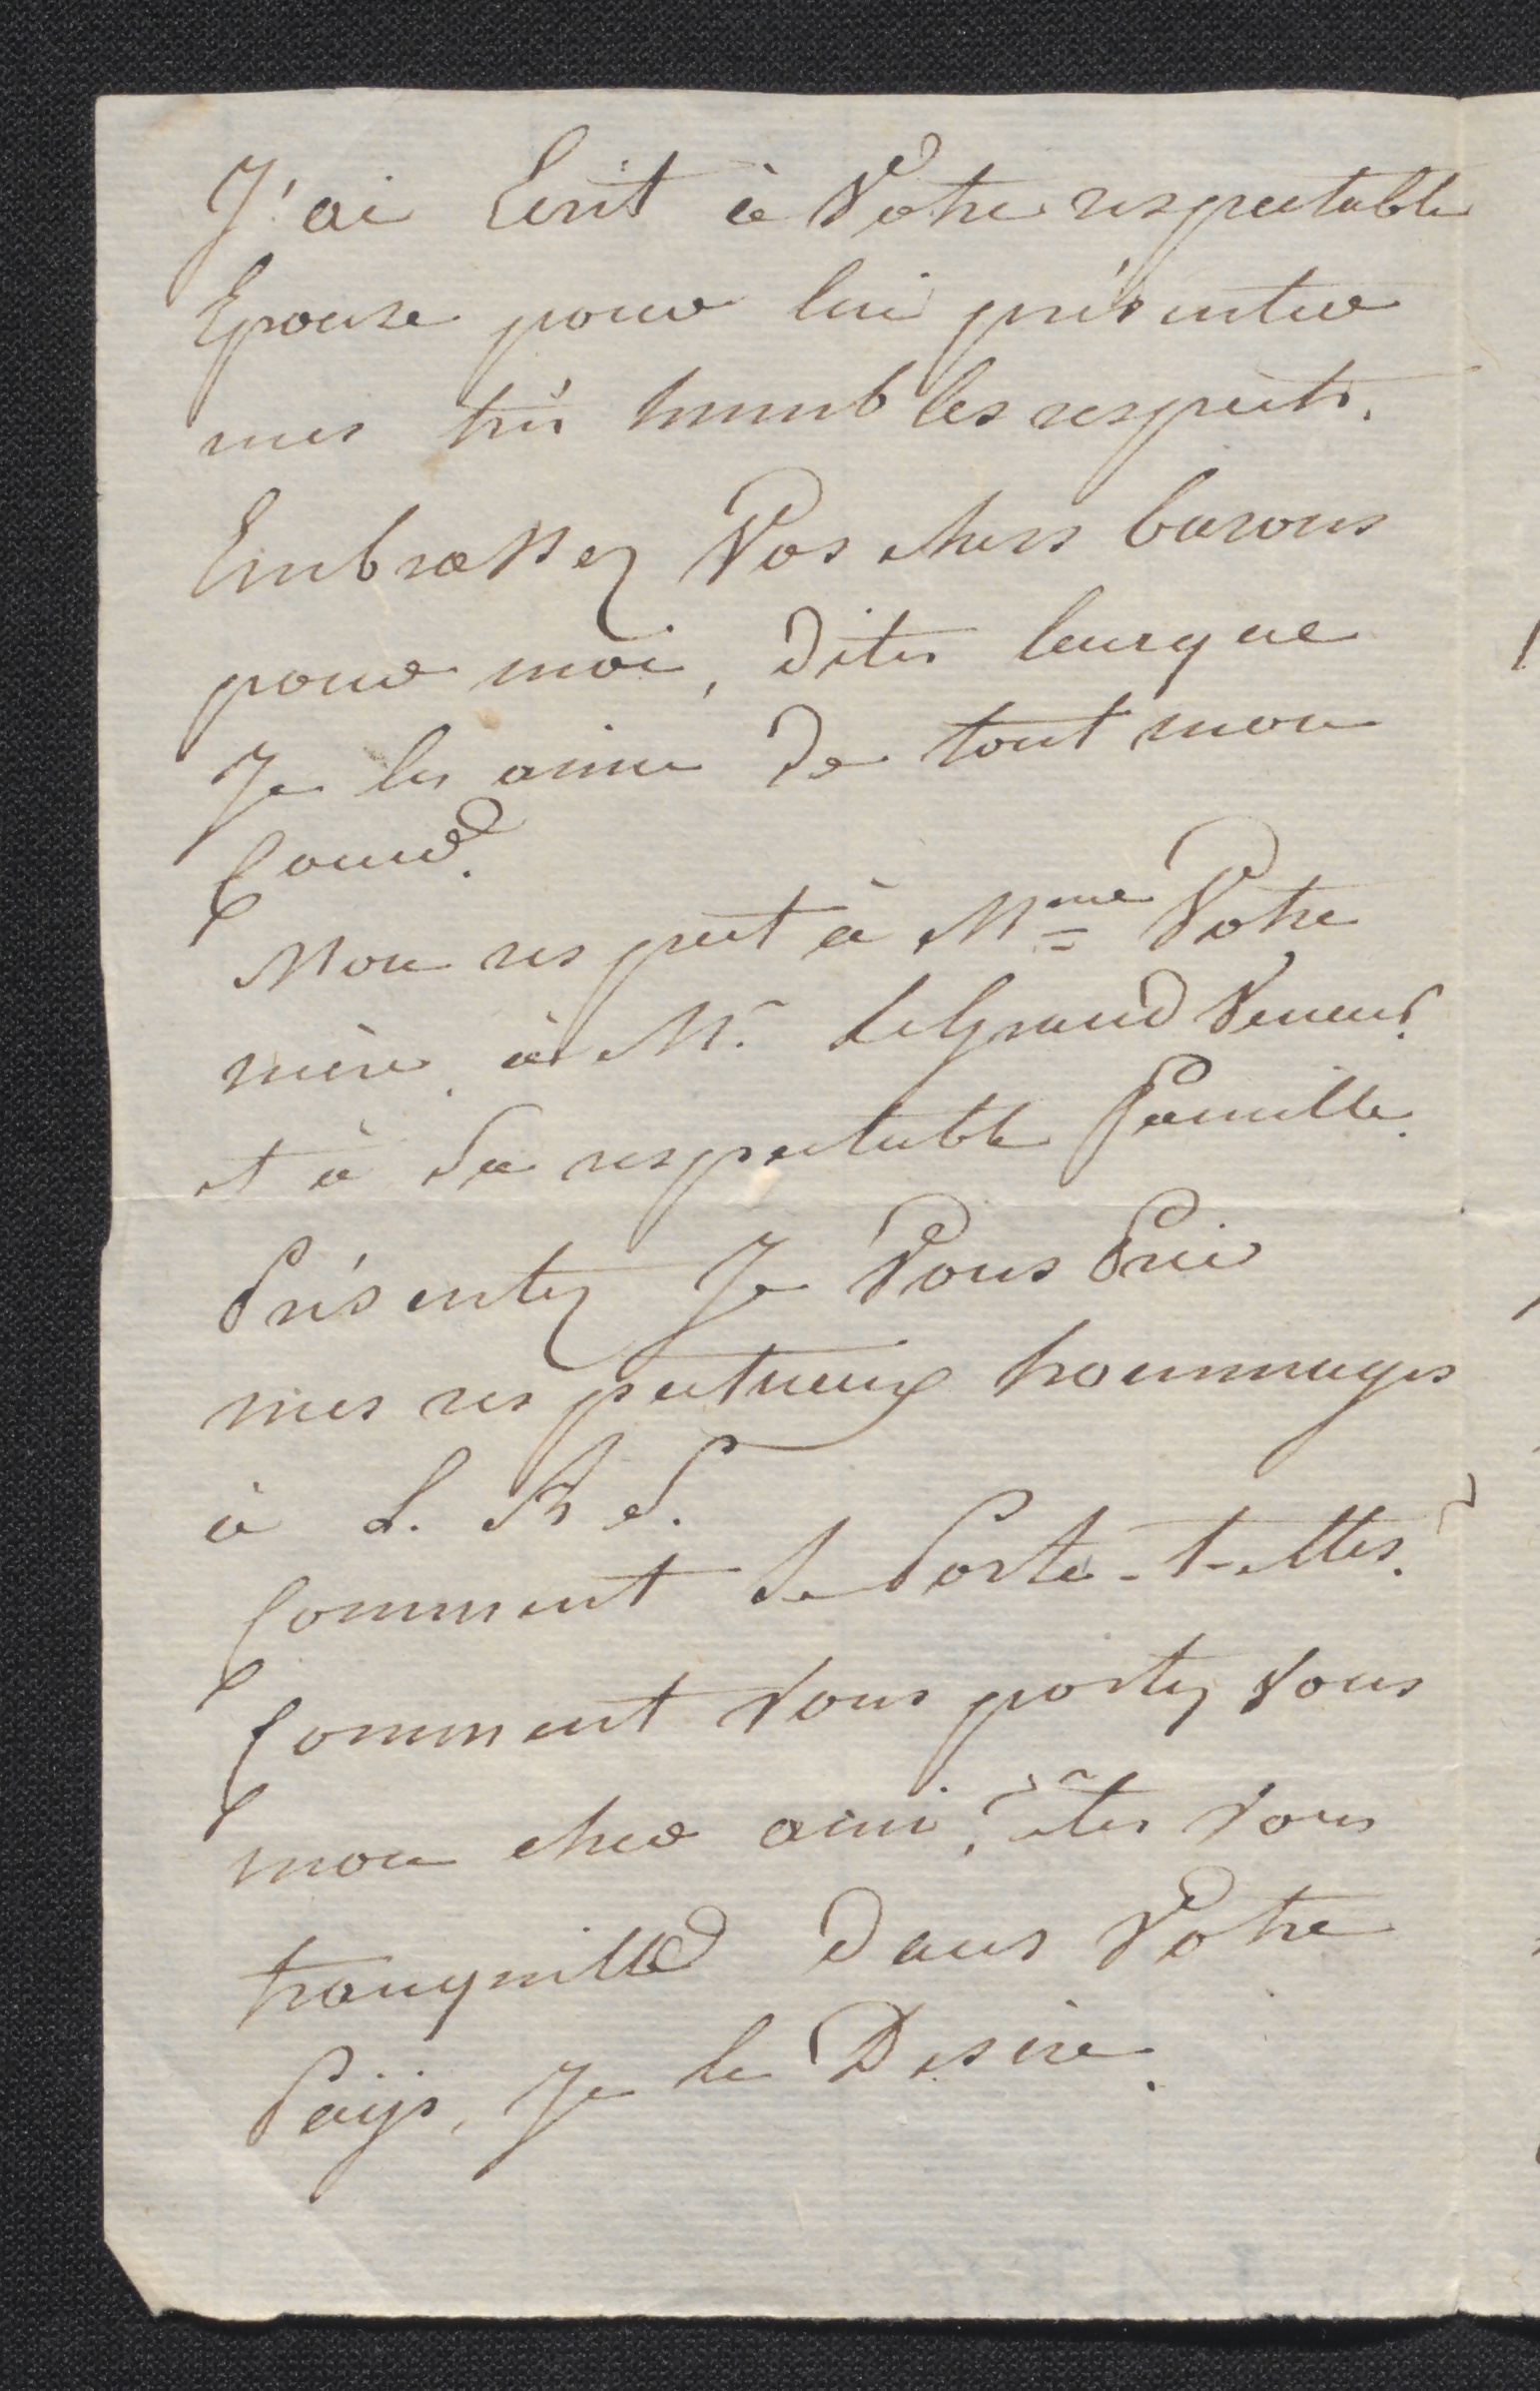 J'ai Ecrit à Votre respectable
Epouse pour lui présenter
mes très humbles respects.
Embrassez Vos chers barons
pour moi, dites leur que
Je les aime de tout mon
Coeur.
Mon respect à Mme Votre
mère, à Mr. le Grand Veneur.
et à Sa respectable famille.
Présentez Je Vous Prie
mes respectueux hommages
à L. A S.
Comment Se Porte-t-elles.?
Comment Vous portez Vous
mon cher ami,? êtes Vous
tranquille dans Votre
Païjs, Je le Desire.